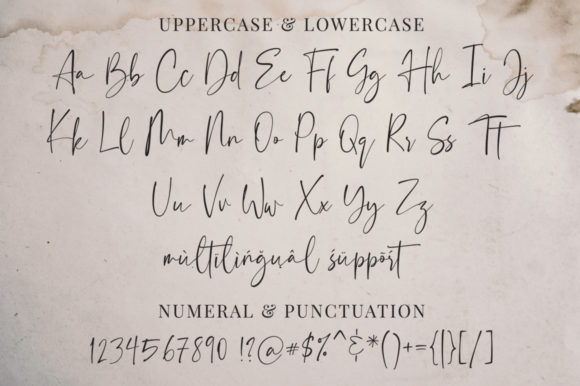 UPPERCASE & LOWERCASE
Aa Bb Cc Dd Ee Ff Gg Hh Ii Jj
Kk Ll Mm Nn Oo Pp Qq Rr Ss Tt
Uu Vv Ww Xx Yy Zz
mùltilińğuâl śüppõřt
NUMERAL & PUNCTUATION
1234567890 !?@#$%^&*()+={|}[/]